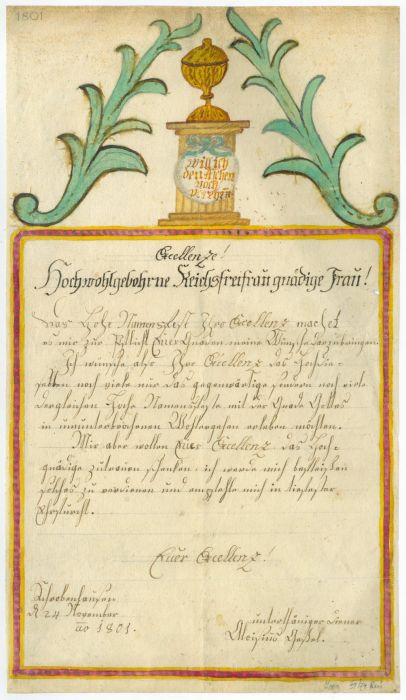 1801
will ich
den Aschen
noch
verehren
Excellenze!
Hochwohlgebohrne Reichsfreifrau gnädige Frau!
Das Hohe Namensfest Ihro Excellenz machet
es mir zur Pflicht Euer Gnaden meine Wünsche darzubringen.
Ich wünsche also Ihro Excellenz das
noch viele nur das gegenwärtige sondern noch viele
dergleichen Hohe Namensfeste mit der Gnade Gottes
in ununterbrochenen Wohlergehen erleben möchten.
Mir aber wollen Euer Excellenz das Hoch-
gnädige zutrauen schenken: ich werde mich befleißen
solches zu verdienen und empfehle mich in tiefester
Ehrfurcht.
Euer Excellenz!
Schrobenhausen
d. 24 November
ao 1801.
unterthäniger Diener
Aloisius